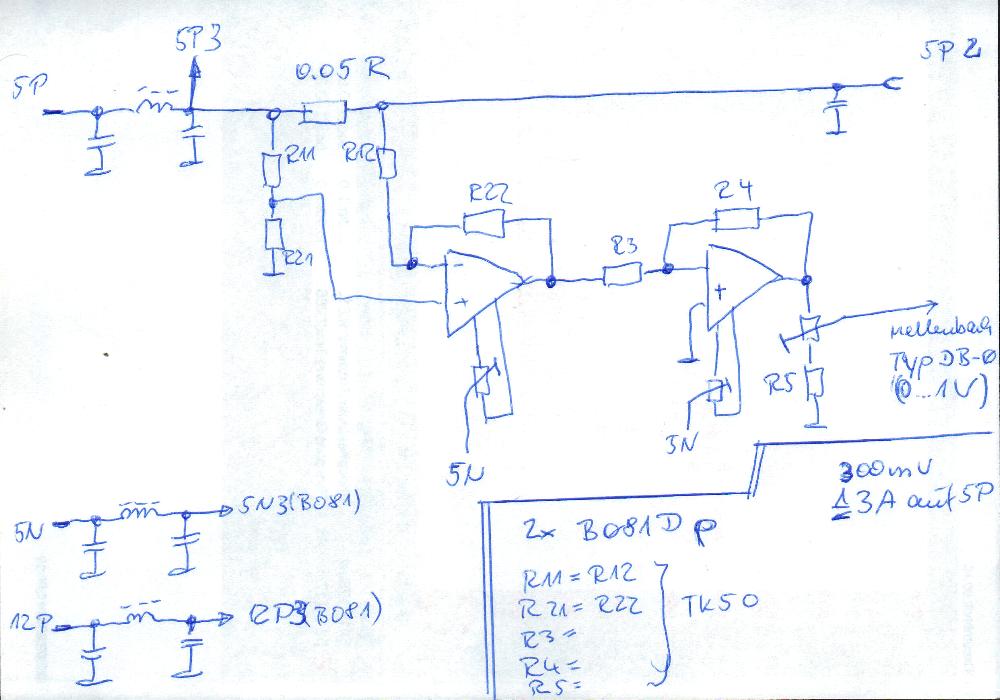 5P3
5P
0.05 R
5P2
R11
R12
R21
R22
R3
R4
-
+
+
5N
5N
R5
Typ DB-0
(0...1V)
300mV
≙ 3A auf 5P
5N
5N3(B081)
12P
12P3(B081)
2x B081D p
R11 = R12
R21 = R22
R3 =
R4 =
R5 =
TK50